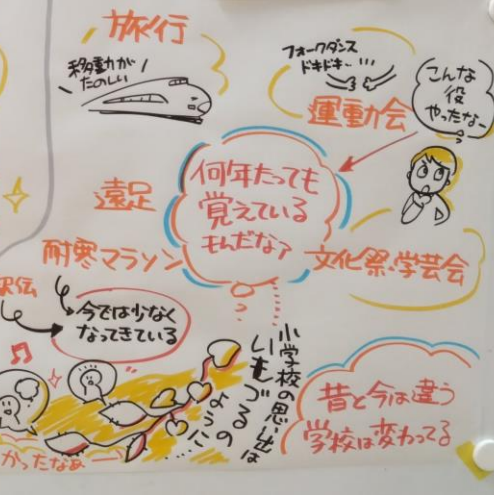 旅行
移動が
たのしい
フォークダンス
ドキドキ…!!!
運動会
こんな
役
やったなー
何年たっても
覚えている
もんだな?
遠足
耐寒マラソン
文化祭・学芸会
駅伝
今では少なく
なってきている
小学校の思い出は
いもづるの
ように…
昔と今は違う
学校は変わってる
かったなぁ